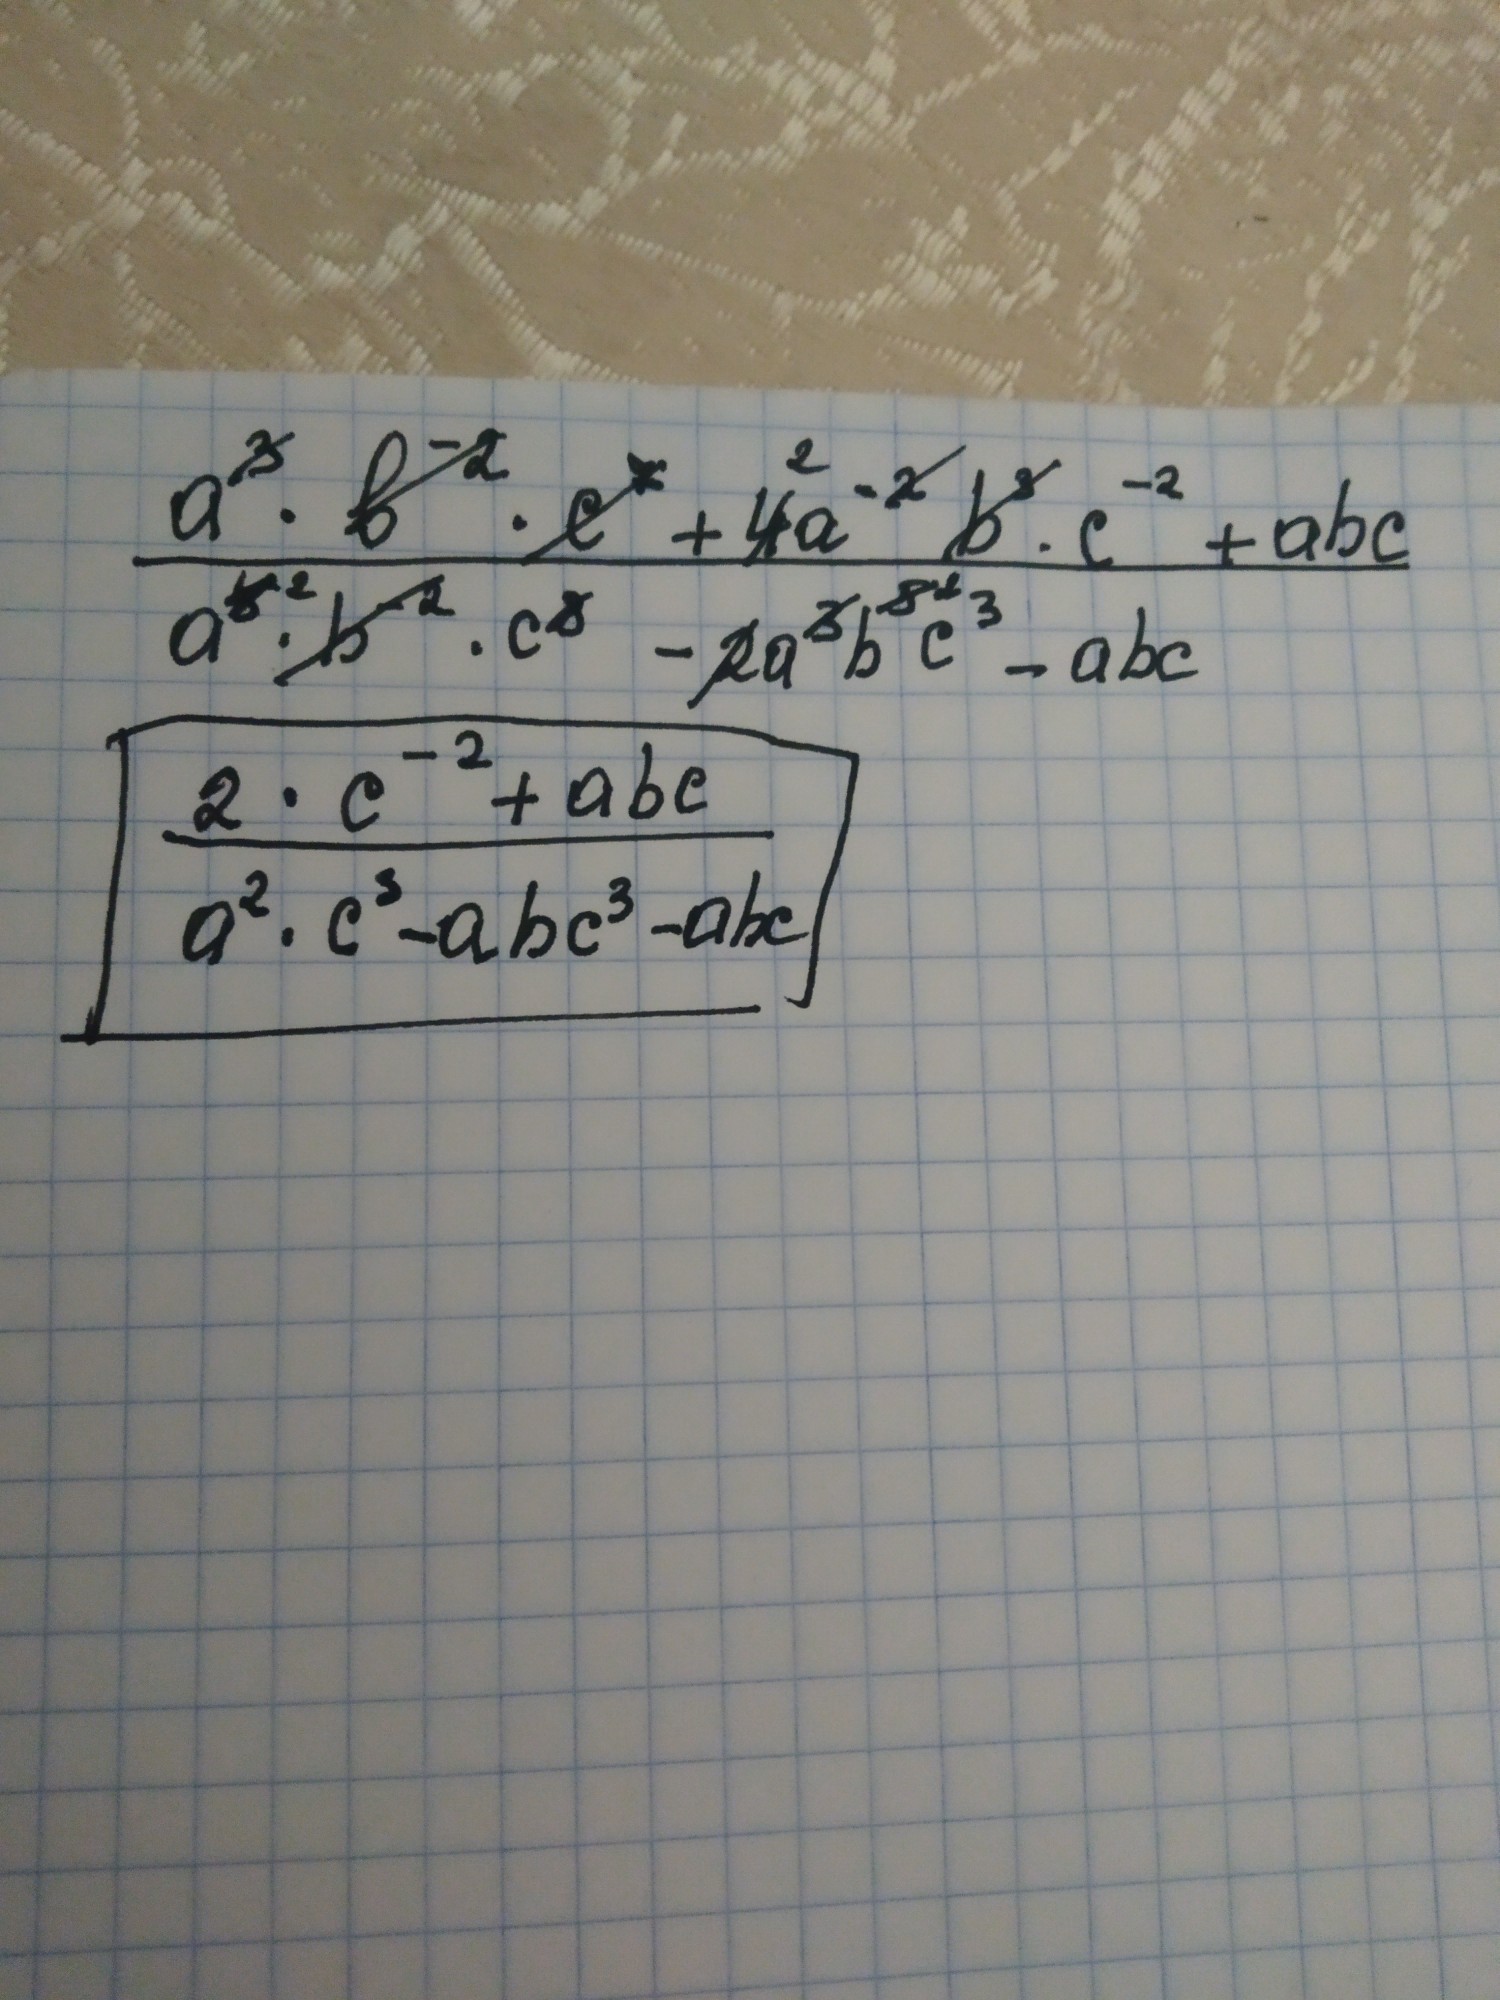 a³ · b⁻² · c + 4a⁻² b³ · c⁻² + abc
a⁵ · b⁻² · c³ - 2a³b⁵c³ - abc
2 · c⁻² + abc
a² · c³ - abc³ - abc